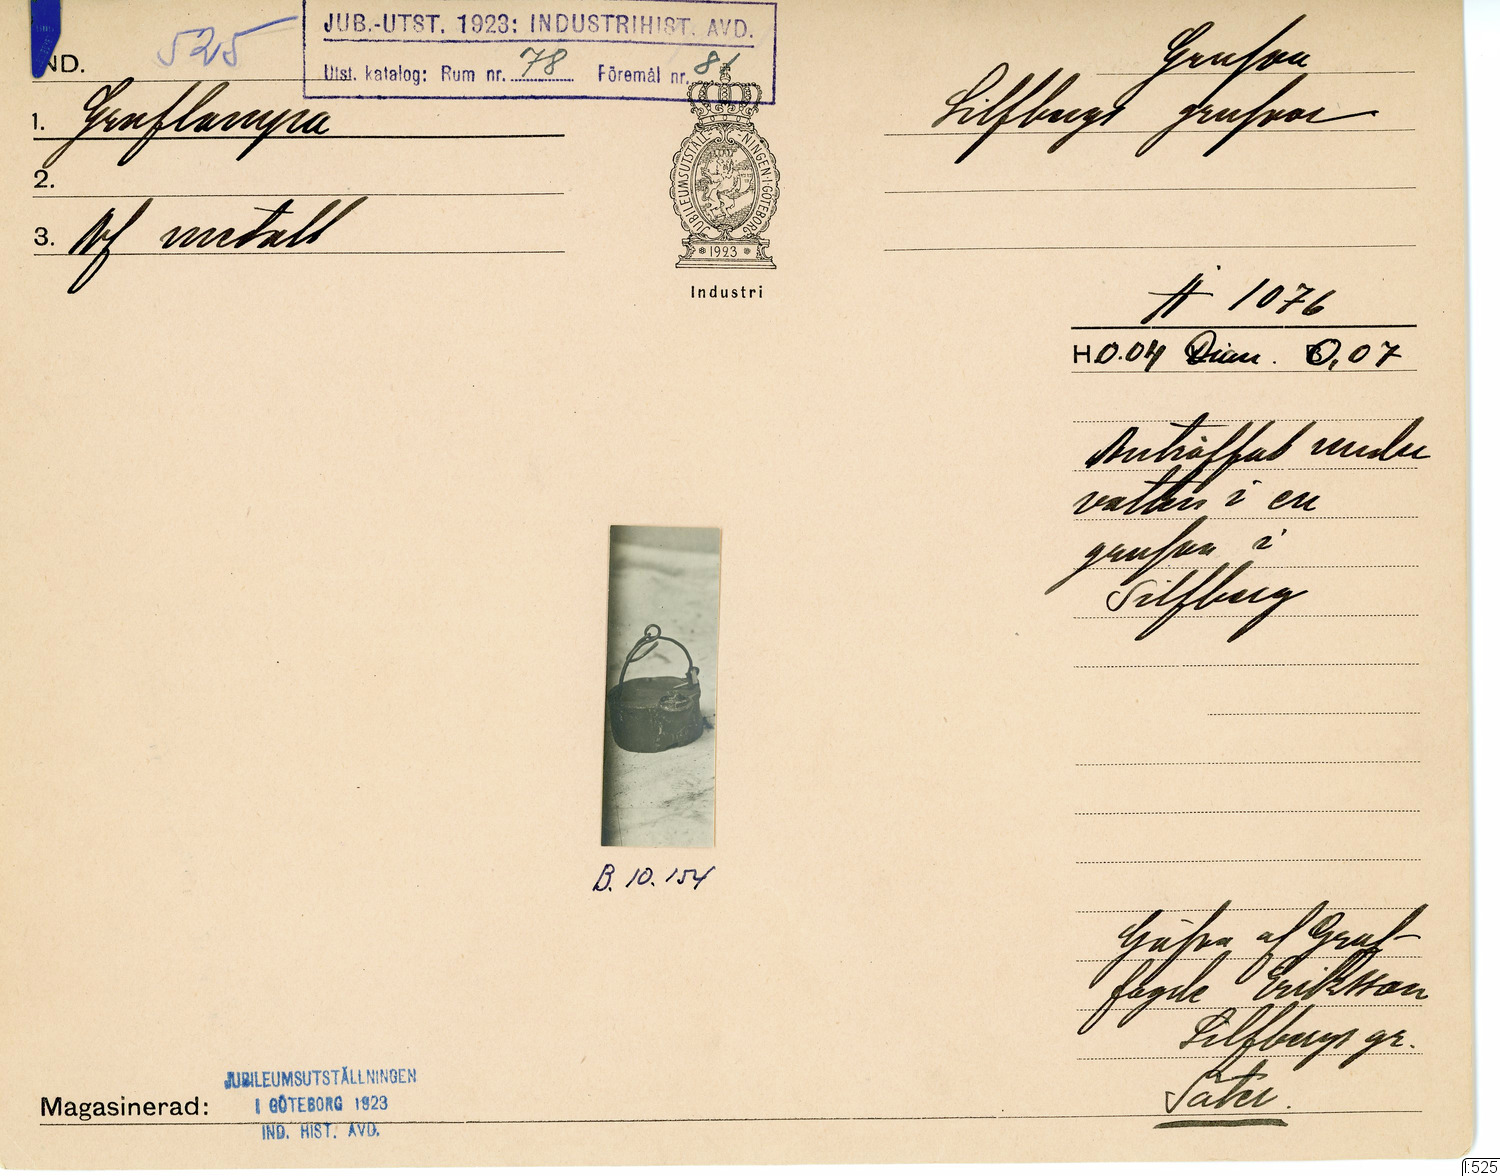 IND. 525
JUB.-UTST. 1923: INDUSTRIHIST. AVD.
Utst. katalog: Rum nr. 78 Föremål nr. 81
Grufva
1. Gruflampa
Silfbergs grufvor
2.
3. Af metall
JUBILEUMSUTSTÄLLNINGEN I GÖTEBORG
1923
Industri
A 1076
H 0.04 Diam. 0,07
Anträffad under
vatten i en
grufva i
Silfberg
B. 10. 154
Gåfva af Gruf-
fogde Eriksson
Silfbergs gr.
Säter.
Magasinerad:
JUBILEUMSUTSTÄLLNINGEN
I GÖTEBORG 1923
IND. HIST. AVD.
I:525